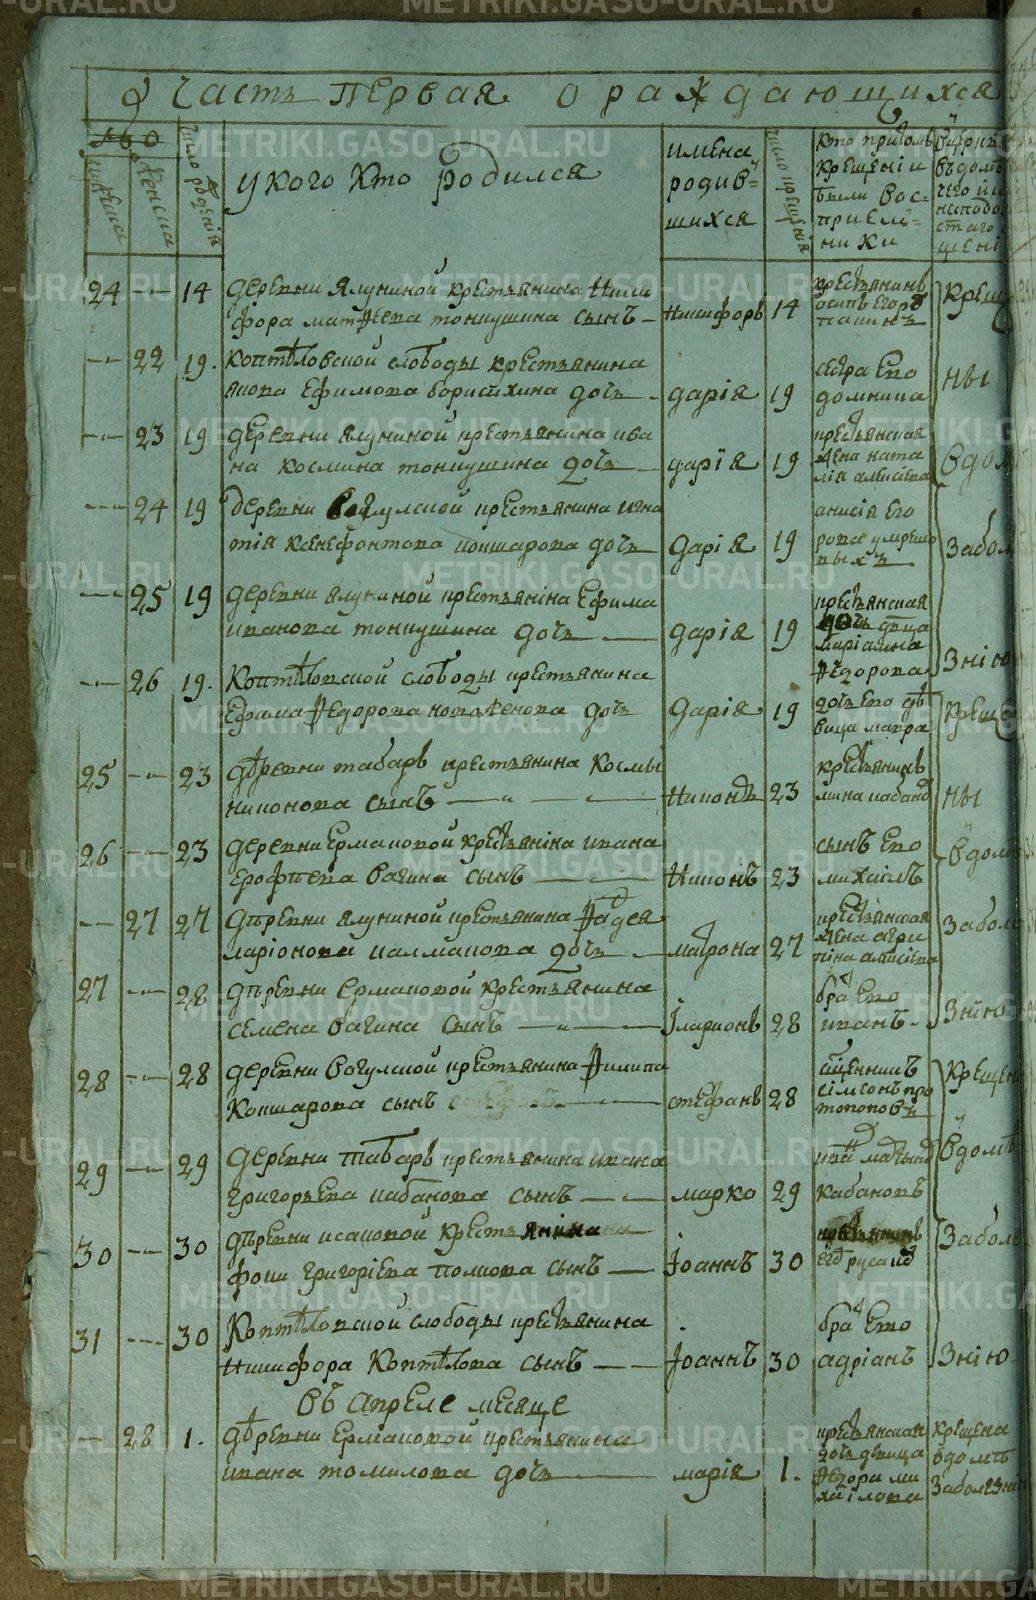 Часть первая о раждающихся
у кого кто родился
имена родив=шихся
кто при томъ крещеніи были вос-приемники
24 — 14 деревни Ялуниной крестьянина Ники
фора Матѳеева Тонкушина сынъ — Никифоръ 14 крестьянинъ осипъ Егоръ
— 22 19. Коптѣловской слободы крестьянина
якова Ефимова борисихина дочь — дарія 19 сестра Его домника
— 23 19 деревни ялуниной крестьянина ива
на Космина тонкушина дочь — дарія 19 крестьянская жена ната лія
— 24 19 деревни вогулской крестьянина игна
тія Ксенефонтова кошкарова дочь — Дарія 19 анисія Его
— 25 19 деревни ялуниной крестьяніна Ефима
иванова тонкушина дочь — дарія 19 крестьянская дочь дѣвица маріамна Ѳедорова
— 26 19. Коптѣловской слободы крестьянина
Ефима Ѳедорова коновленова дочь Дарія 19 дочь Его дѣвица мавра
25 — 23 дѣревни табаръ крестьянина Космы
никонова сынъ — Никонъ 23 крестьянинъ мина кабанов
26 — 23 деревни Ермаковой крестьяніна ивана
Ерофѣева Вагина сынъ — Никонъ 23 сынъ Его михаилъ
— 27 27 дѣревни ялуниной крестьянина Ѳадея
ларіонова калмакова дочь — матрона 27 крестьянская жена агрипіна
27 — 28 дѣревни Ермаковой крестьянина
семена Вагина сынъ — Іларионъ 28 братъ Его иванъ
28 — 28 деревни Вогулской крестьянина Ѳилипа
Кошкарова сынъ — стефанъ 28 сщенникъ сімеонъ протопоповъ
29 — 29 деревни табаръ крестьянина ивана
григорьева кабанова сынъ — марко 29 кабановъ
30 — 30 дѣревни исаковой крестьянина
фоки григоріева полкова сынъ — Іоаннъ 30
31 — 30 Коптѣловской слободы крестьянина
Никифора Коптѣлова сынъ — Іоаннъ 30 братъ Его адріанъ
въ апреле месяце
— 28 1. дѣревни Ермаковой крестьянина
ивана томилова дочь — марія 1. крестьянская дочь дѣвица Ѳедора михаилова крещена вдомѣ
METRIKI.GASO-URAL.RU